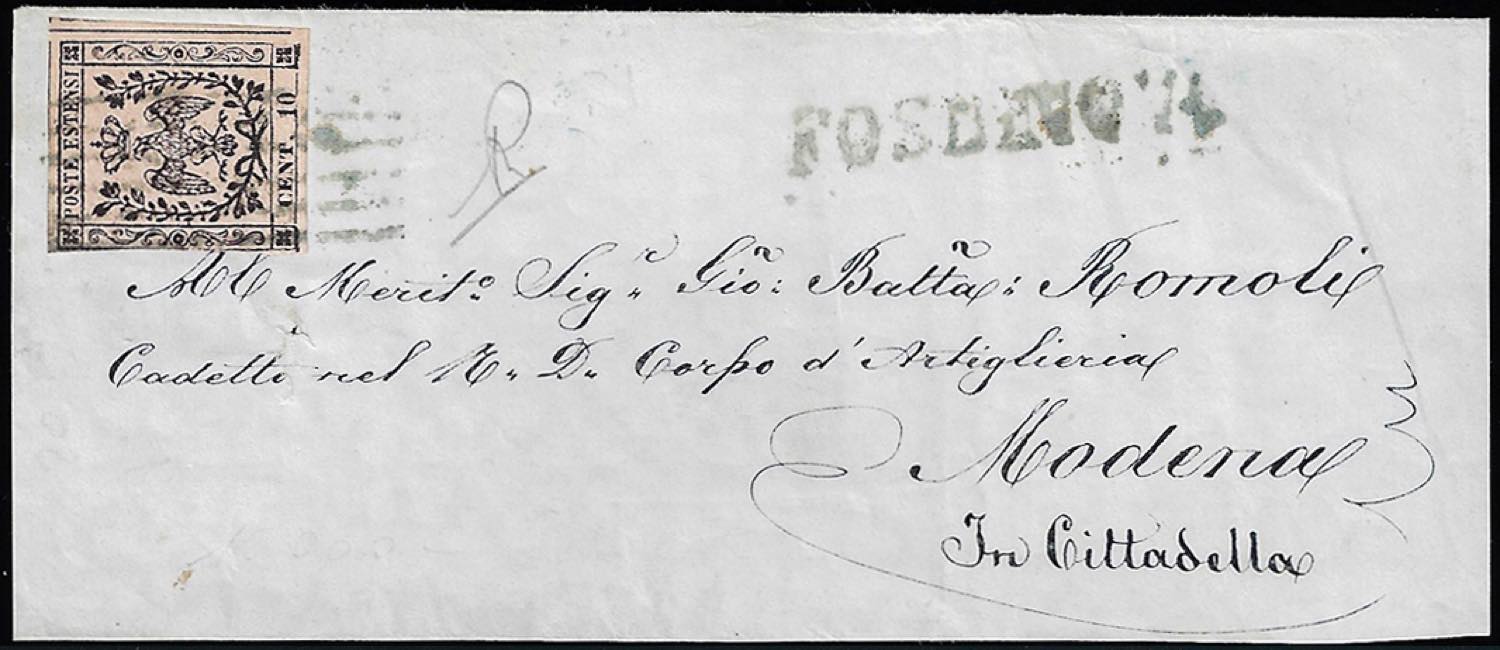 POSTE ESTENSI
CENT. 10
FOSDINOVO
All Merit.o Sig.r Gio: Batta: Romoli
Cadetto nel R. D. Corpo d'Artiglieria
Modena
In Cittadella